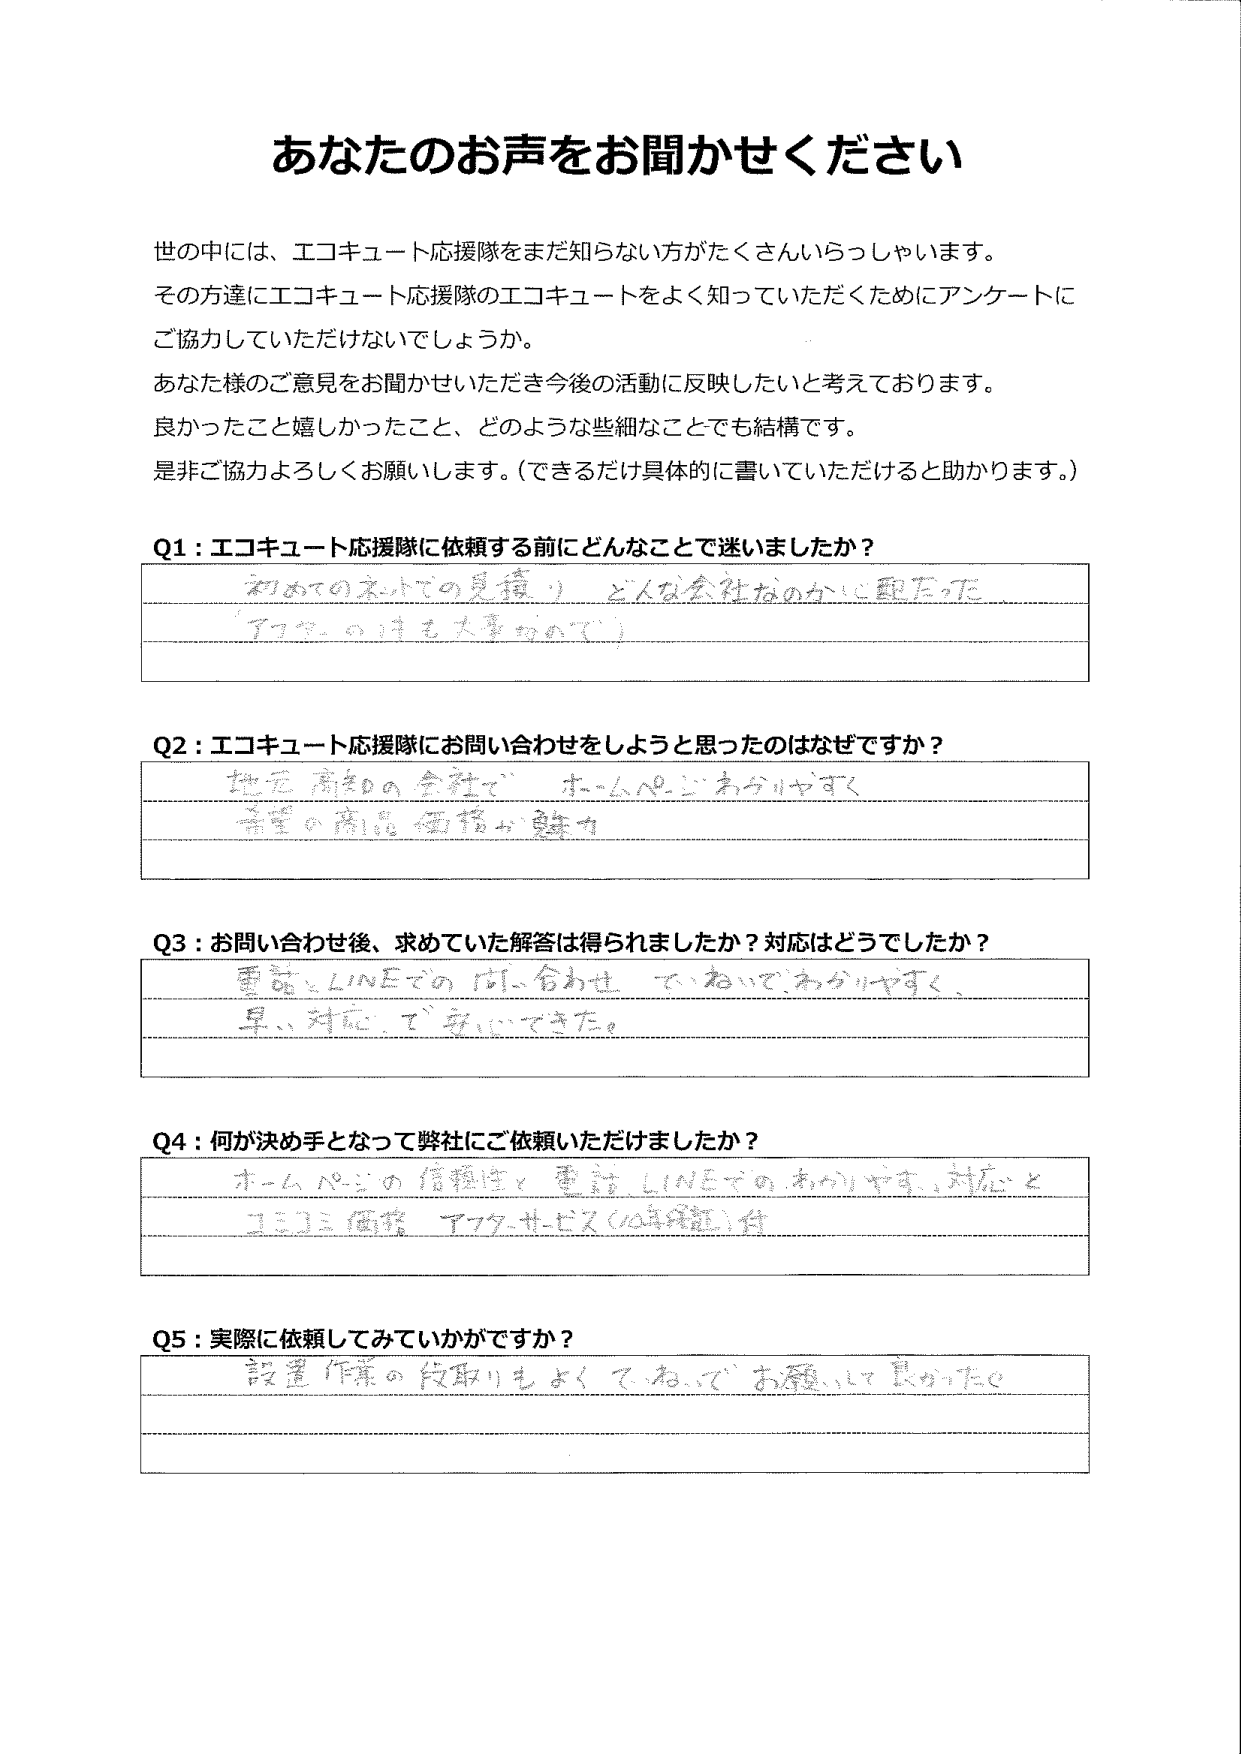 あなたのお声をお聞かせください
世の中には、エコキュート応援隊をまだ知らない方がたくさんいらっしゃいます。
その方達にエコキュート応援隊のエコキュートをよく知っていただくためにアンケートに
ご協力していただけないでしょうか。
あなた様のご意見をお聞かせいただき今後の活動に反映したいと考えております。
良かったこと嬉しかったこと、どのような些細なことでも結構です。
是非ご協力よろしくお願いします。（できるだけ具体的に書いていただけると助かります。）
Q1：エコキュート応援隊に依頼する前にどんなことで迷いましたか？
初めてのネットでの見積り どんな会社なのか心配だった
(アフターの件も大事なので)
Q2：エコキュート応援隊にお問い合わせをしようと思ったのはなぜですか？
地元 高知の会社で ホームページわかりやすく
希望の商品 価格が魅力
Q3：お問い合わせ後、求めていた解答は得られましたか？対応はどうでしたか？
電話とLINEでの問い合わせ ていねいでわかりやすく、
早い対応で安心できた。
Q4：何が決め手となって弊社にご依頼いただけましたか？
ホームページの信頼性と電話、LINEでのわかりやすい対応と
コミコミ価格 アフターサービス(10年保証)付
Q5：実際に依頼してみていかがですか？
設置作業の段取りもよくていねいでお願いして良かった。